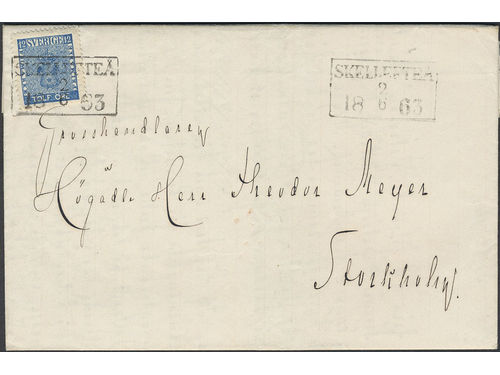 12 SVERIGE 12
TOLF ÖRE
SKELLEFTEÅ
2
18 6 63
SKELLEFTEÅ
2
18 6 63
Grosshandleren
Högädle Herr Theodor Meyer
Stockholm.